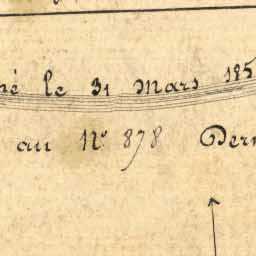 né le 31 Mars 185
au N° 878 Der